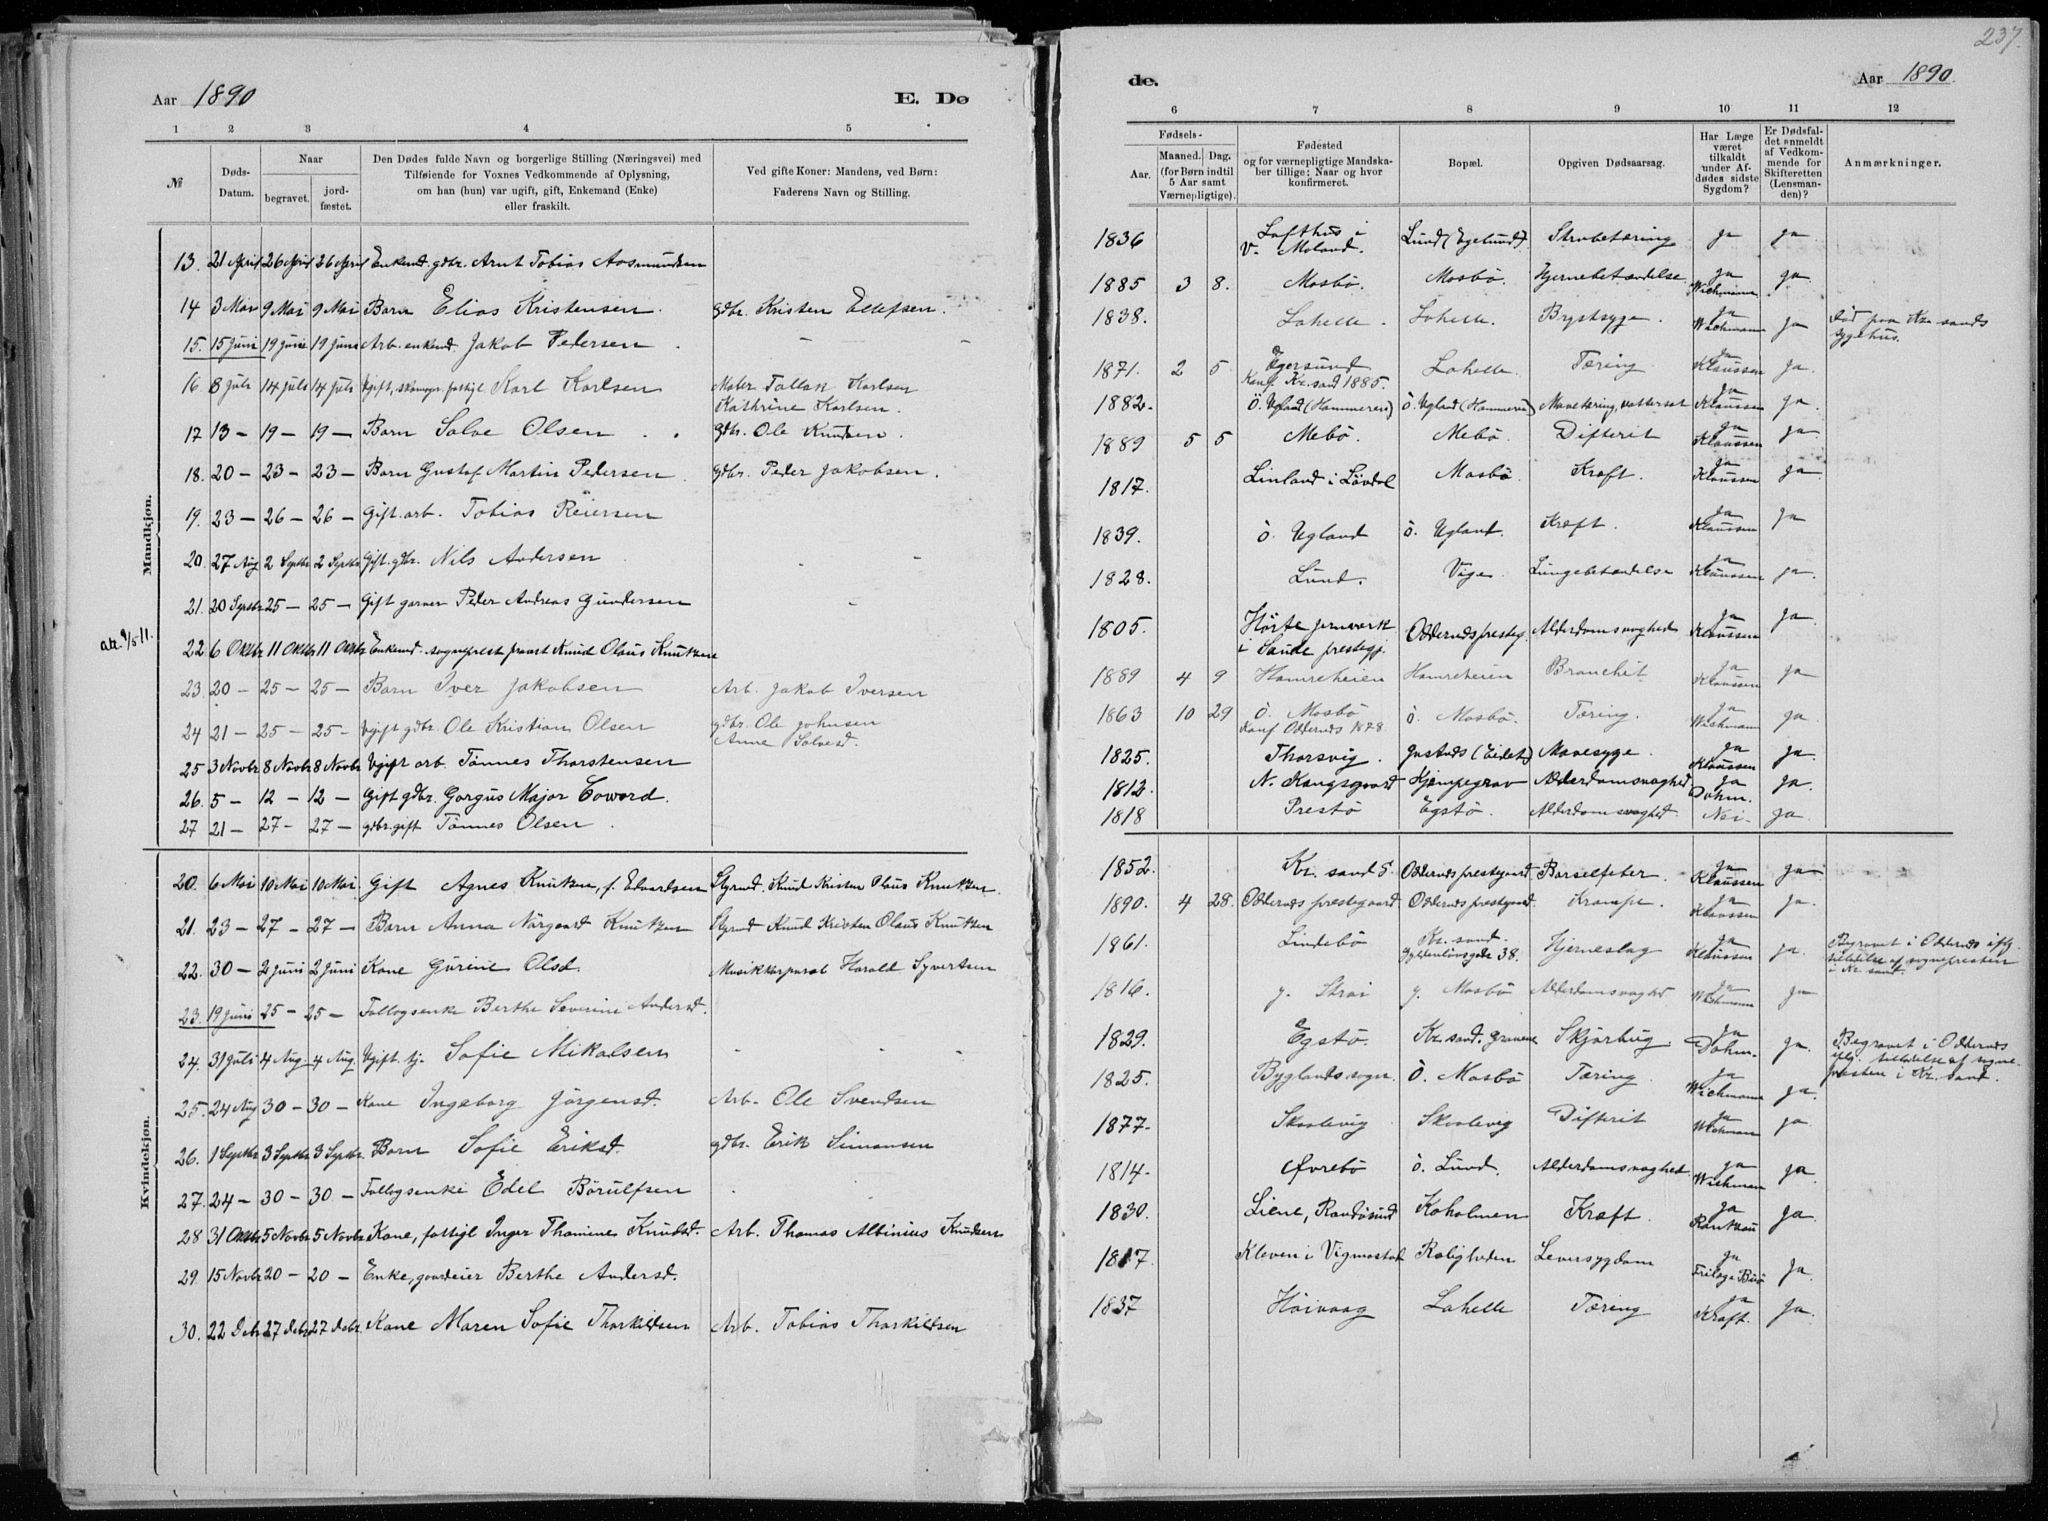 237.
Aar 1890
E. Dø
de.
Aar 1890.
1 2 3 4 5
6 7 8 9 10 11 12
№
Døds-Datum.
Naar
begravet.
jordfæstet.
Den Dødes fulde Navn og borgerlige Stilling (Næringsvei) med
Tilføiende for Voxnes Vedkommende af Oplysning,
om han (hun) var ugift, gift, Enkemand (Enke)
eller fraskilt.
Ved gifte Koner: Mandens, ved Børn:
Faderens Navn og Stilling.
Fødsels-
Aar.
Maaned. Dag.
(for Børn indtil
5 Aar samt
Værnepligtige).
Fødested
og for værnepligtige Mandska-
ber tillige: Naar og hvor
konfirmeret.
Bopæl.
Opgiven Dødsaarsag.
Har Læge
været
tilkaldt
under Af-
dødes sidste
Sygdom?
Er Dødsfal-
det anmeldt
af Vedkom-
mende for
Skifteretten
(Lensman-
den)?
Anmærkninger.
Mandkjøn.
13. 21 April 26 April 26 April Enkemd. gdbr. Arnt Tobias Aasmundsen
1836 Lofthus i V. Moland. Lund (Egelund). ja ja
14 3 Mai 9 Mai 9 Mai Barn Elias Kristensen. gdbr. Kristen Ellefsen.
1885 3 8. Mosbö. Mosbö. Hjernebetændelse ja Wichmann ja.
15. 15 Juni 19 Juni 19 Juni Arb. enkemd. Jakob Pedersen
1838. Lahelle. Lahelle. Brystsyge ja Wichmann ja Död paa Kr.sands sygehus.
16 8 Juli 14 Juli 14 Juli Ugift, fattigl. Karl Karlsen Kathrine Karlsen.
1871. 2 5 Egersund Konf. Kr.sand 1885. Lahelle. Tæring. ja Klaussen ja.
17 13 – 19 – 19 – Barn Salve Olsen gdbr. Ole Knudsen.
1882. Ö. Ugland (Hammeren) ö. Ugland (Hammeren) ja Klaussen ja.
18. 20 – 23 – 23 – Barn Gustaf Martin Pedersen gdbr. Peder Jakobsen.
1889 5 5 Mebö. Mebö. Difterit ja Klaussen ja.
19. 23 – 26 – 26 – Gift. arb. Tobias Reiersen
1817. Linland i Lövdal Mosbö. Kræft. ja Klaussen ja.
20. 27 Aug 2 Septbr 2 Septbr Gift. gdbr. Nils Andersen
1839. ö. Ugland ö. Ugland. Kræft. ja Klaussen ja
21. 20 Septbr 25 – 25 – Gift garver Peder Andreas Gundersen
1828. Lund. Vige. Lungebetændelse ja Klaussen ja.
att. 9/5 11.
22. 6 Oktbr 11 Oktbr 11 Oktbr Enkemd. sogneprest provst Knud Olaus Knutzen
1805. jernverk i Saude prestegj. Oddernes presteg. Alderdomsvaghed ja Klaussen ja.
23. 20 – 25 – 25 – Barn Iver Jakobsen Arb. Jakob Iversen
1889 4 9 Hamreheien Hamreheien Bronchit ja Klaussen ja
24 21 – 25 – 25 – Ugift gdbr. Ole Kristian Olsen gdbr. Ole Johnsen Anne Salvesd.
1863 10 29 Ö. Mosbö Konf Oddernes 1878. ö. Mosbö. Tæring. ja Wichmann ja.
25 3 Novbr 8 Novbr 8 Novbr Ugift arb. Tönnes Thorstensen
1825. Thorsvig. (Eidet) Mavesyge. ja Klaussen ja.
26. 5 – 12 – 12 – Gift gdbr. Gorgus Major Coward.
1812. N. Kongsgaard Kjæmpegrav Alderdomsvaghed ja Dahm. ja.
27 21 – 27 – 27 – gdbr. gift Tönnes Olsen.
1818 Prestö Egstö. Alderdomsvaghed. Nei – ja.
Kvindekjøn.
20. 6 Mai 10 Mai 10 Mai. Gift Agnes Knutzen, f. Edvardsen Styrmd. Knud Kristen Olaus Knutzen.
1852. Kr. sand S. Oddernes prestegaard. Barselfeber. ja Klaussen ja
21. 23 – 27 – 27 – Barn Anna Nörgaard Knutzen Styrmd Knud Kristen Olaus Knutzen
1890. 4 28. Oddernes prestegaard Oddernes prestegaard. Krampe. ja Klaussen ja.
22. 30 – 2 Juni 2 Juni Kone Gurine Olsd. Musikkorporal Harald Syvertsen
1861. Lindebö Kr. sand. Gyldenlövsgade 38. Hjerneslag ja Klaussen ja. Begravet i Oddernes iflg. tilladelse af sognepresten i Kr. sand.
23. 19 Juni 25 – 25 – Fattogsenke Berthe Severine Andersd.
1816. y. Strai y. Mosbö Alderdomsvaghed ja Wichmann ja
24. 31 Juli 4 Aug. 4 Aug. Ugift tj. Sofie Mikalsen
1829. Egstö. Kr. sand. Gravene ja Dahm. ja. Begravet i Oddernes iflg. tilladelse af sogne-presten i Kr. sand.
25. 24 Aug 30 – 30 – Kone Ingeborg Jörgensd. Arb. Ole Svendsen
1825. Byglands sogn. Ö. Mosbö Tæring. ja Wichmann ja.
26. 1 Septbr 3 Septbr 3 Septbr. Barn Sofie Eriksd. gdbr. Erik Simonsen
1877 Skaalevig Skaalevig Difterit ja Wichmann ja
27. 24 – 30 – 30 – Fattogsenke Edel Börulfsen
1814 Øvrebö ö. Lund. Alderdomsvaghed ja Wichmann ja.
28 31 Oktbr 5 Novbr 5 Novbr Kone, fattigl Inger Thomine Knudsd. Arb. Thomas Albinius Knudsen
1830. Liene, Randösund Koholmen Kræft. ja Rantzau ja
29 15 Novbr 20 – 20 – Enke, gaardeier Berthe Andersd.
1817 Kleven i Vigmostad Roligheden Leversygdom ja ja.
30. 22 Debr 27 Debr 27 Debr. Kone Maren Sofie Thorkildsen Arb. Tobias Thorkildsen
1837 Höivaag Lahelle Tæring ja Kraft. ja.